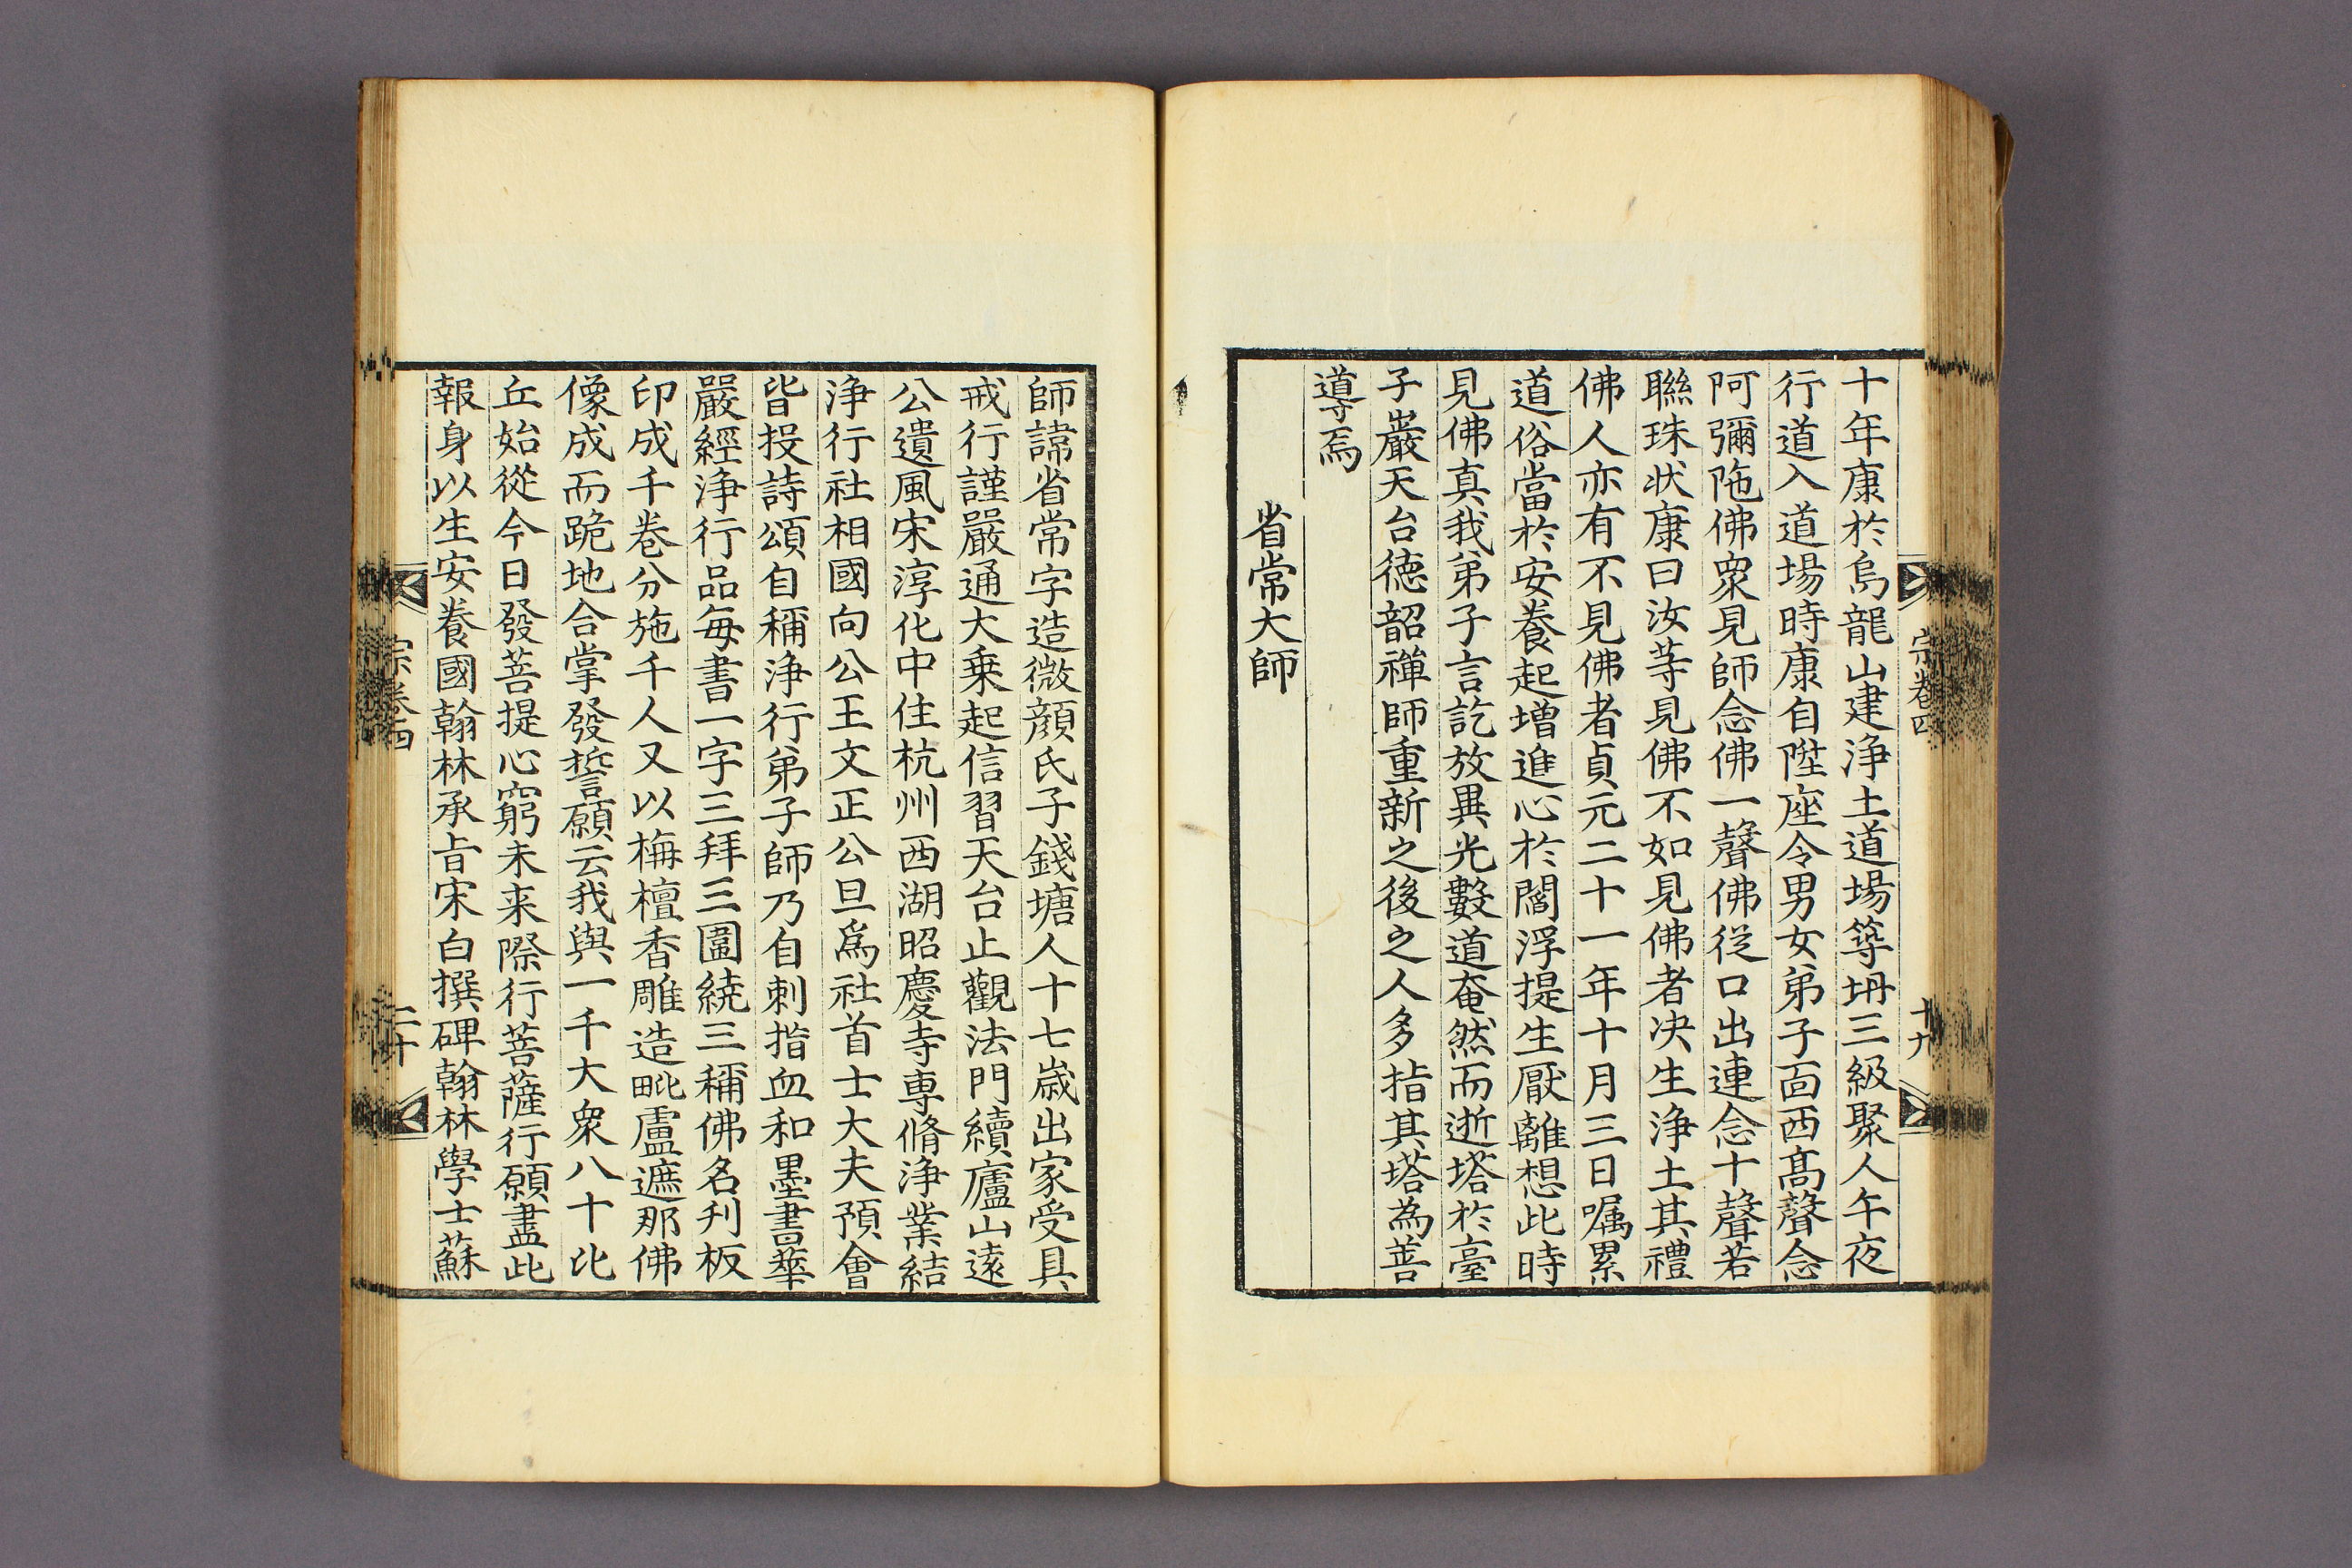 十年康於烏龍山建淨土道場築坍三級聚人午夜
行道入道場時康自陞座令男女弟子面西髙聲念
阿彌陁佛衆見師念佛一聲佛從口出連念十聲若
聯珠狀康曰汝等見佛不如見佛者决生淨土其禮
佛人亦有不見佛者貞元二十一年十月三日囑累
道俗當於安養起増進心於閻浮提生厭離想此時
見佛真我弟子言訖放異光數道奄然而逝塔於臺
子巖天台德韶禪師重新之後之人多指其塔為善
導焉
省常大師
宗卷四
十九
師諱省常字造微顔氏子錢塘人十七歲出家受具
戒行謹嚴通大乗起信習天台止觀法門續廬山遠
公遺風宋淳化中住杭州西湖昭慶寺專脩淨業結
淨行社相國向公王文正公旦爲社首士大夫預會
皆投詩頌自稱淨行弟子師乃自刺指血和墨書華
嚴經淨行品每書一字三拜三圍繞三稱佛名刋板
印成千卷分施千人又以栴檀香雕造毗盧遮那佛
像成而跪地合掌發誓願云我與一千大衆八十比
丘始從今日發菩提心窮未来際行菩薩行願盡此
報身以生安養國翰林承旨宋白撰碑翰林學士蘇
宗卷四
二十